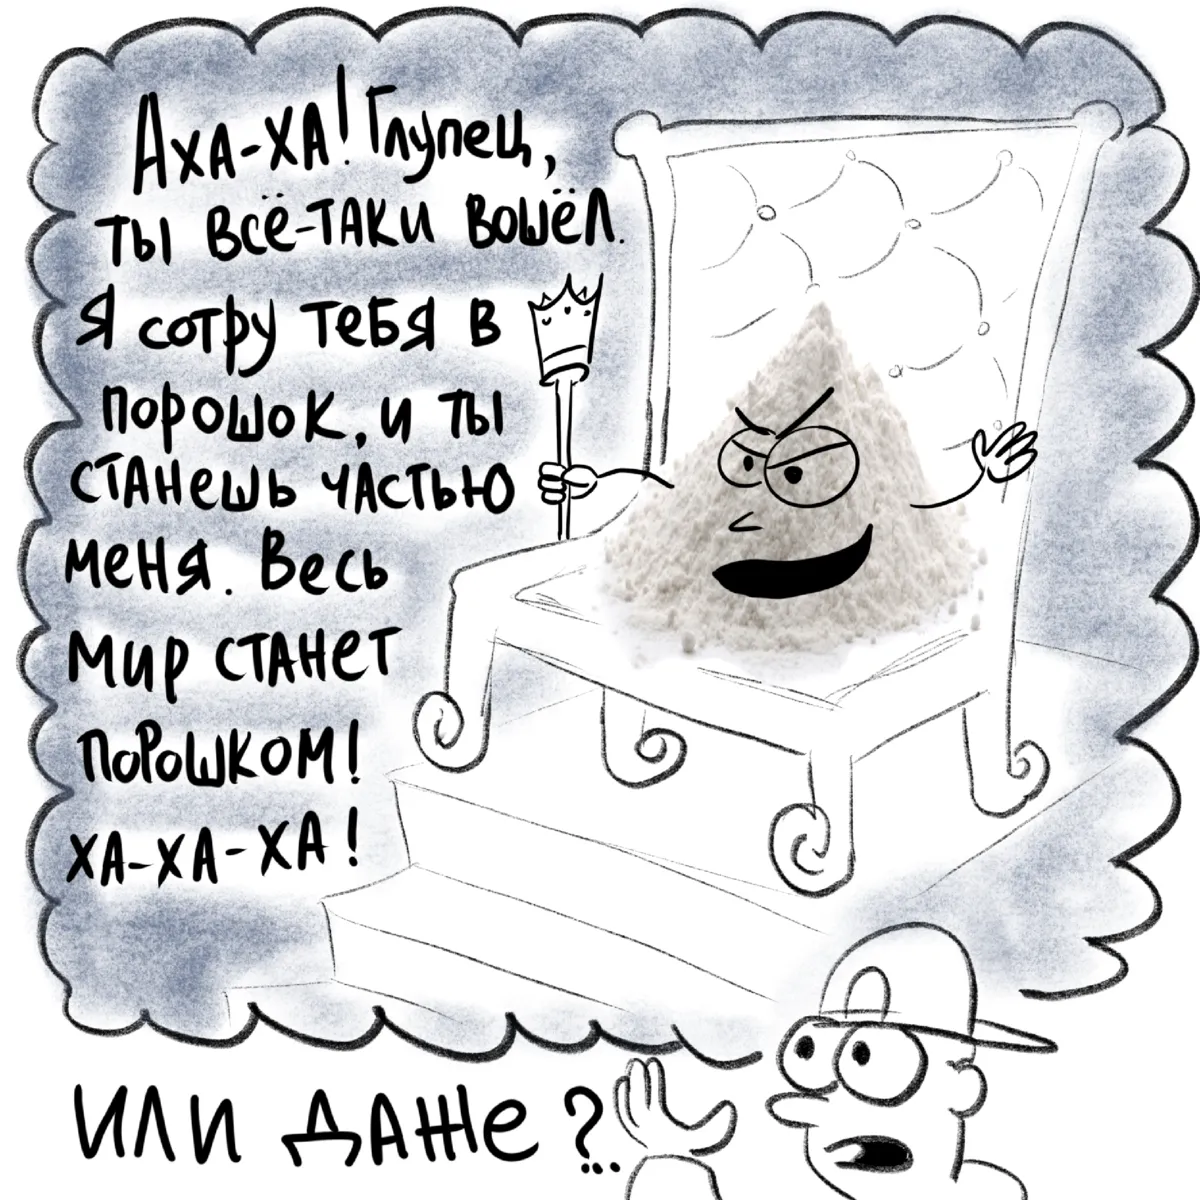 Аха-ха! Глупец,
ты всё-таки вошёл.
Я сотру тебя в
порошок, и ты
станешь частью
меня. Весь
мир станет
порошком!
Ха-ха-ха!
Или даже?...